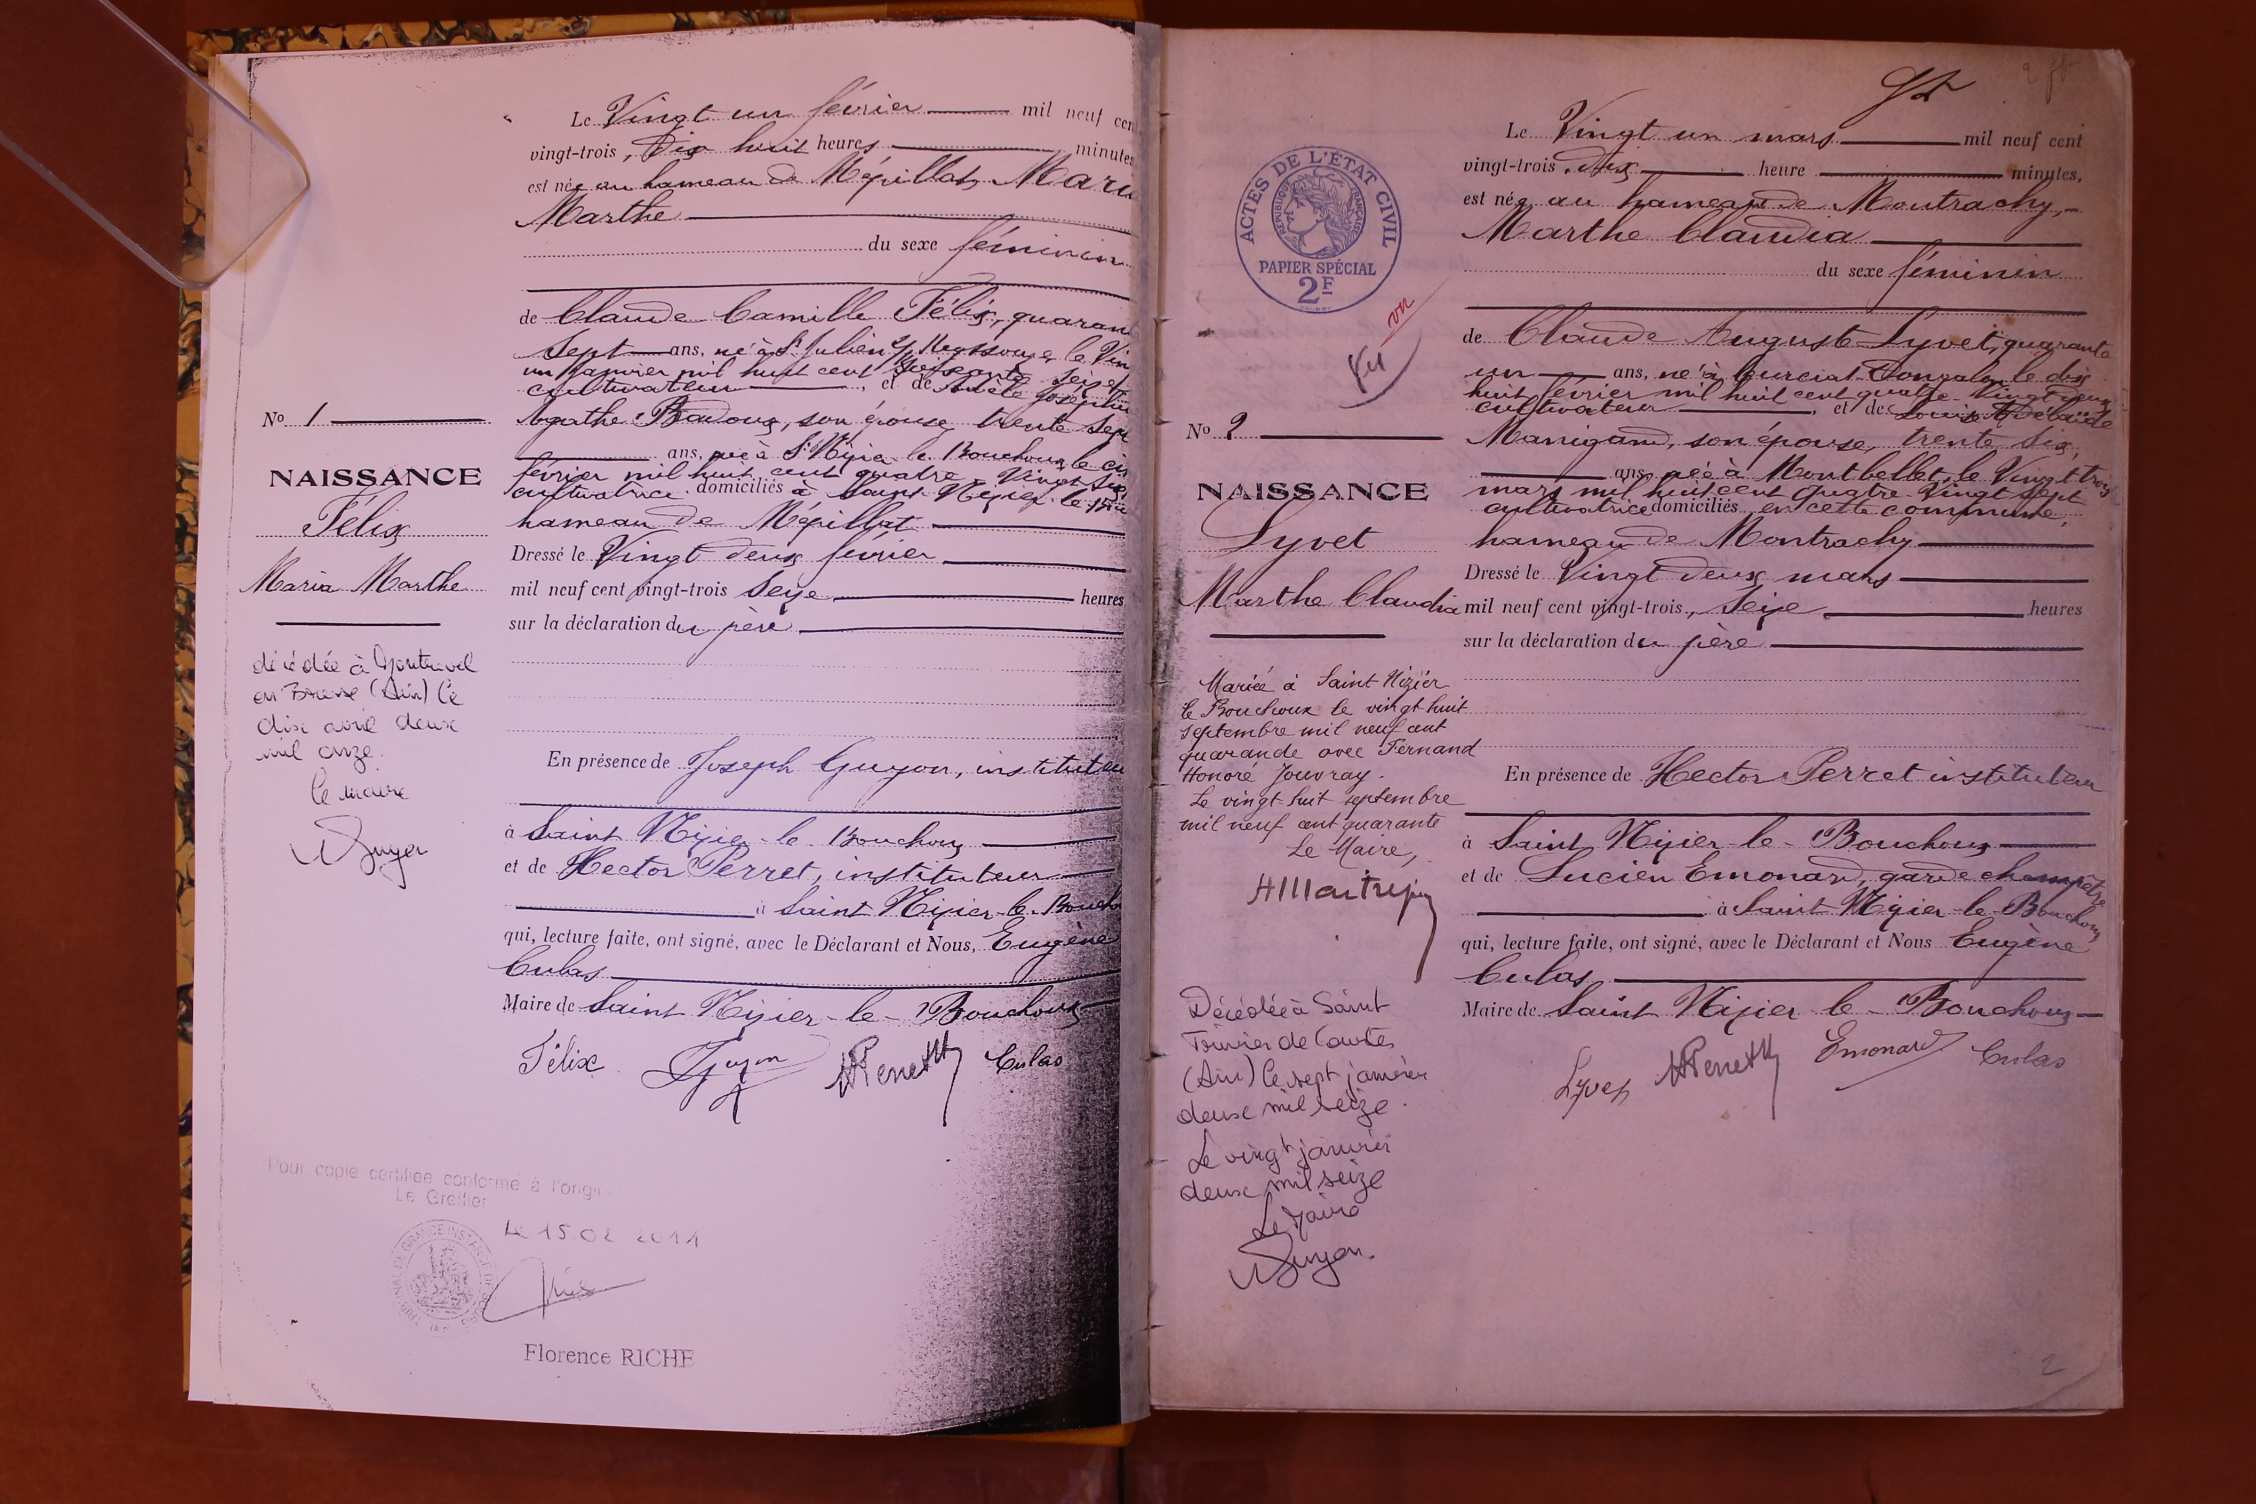 Le Vingt un février mil neuf cen
vingt-trois, Dix huit heures minutes
est née au hameau de Mépillat, Maria
Marthe
du sexe féminin
de Claude Camille Félix, quarante
sept ans, né à St Julien s/ Reyssouze le Vin
un janvier mil huit cent soixante seize
cultivateur et de Adèle Joséphine
Agathe Badoux, son épouse trente sept
ans, née à St Nizier le Bouchoux le cin
février mil huit cent quatre Vingt six
cultivatrice domiciliés à Saint Nizier le Bou
hameau de Mépillat
Dressé le Vingt deux février
mil neuf cent vingt-trois Seize heures
sur la déclaration du père
En présence de Joseph Guyon, instituteu
à Saint Nizier-le-Bouchoux
et de Hector Perret, instituteur
à Saint Nizier-le-Boucho
qui, lecture faite, ont signé, avec le Déclarant et Nous, Eugène
Culas
Maire de Saint Nizier-le-Bouchoux
Félix Guyon HPerret Culas
No 1
NAISSANCE
Félix
Maria Marthe
décédée à Montrevel
en Bresse (Ain) le
dix avril deux
mil onze.
le maire
Pour copie certifiée conforme à l'origi
Le Greffier
Le 15 02 2014
Florence RICHE
ACTES DE L'ÉTAT CIVIL
RÉPUBLIQUE FRANÇAISE
PAPIER SPÉCIAL
2F
vu
No 2
NAISSANCE
Lyvet
Marthe Claudia
Mariée à Saint Nizier
le Bouchoux le vingt huit
septembre mil neuf cent
quarante avec Fernand
Honoré Jouvray.
Le vingt huit septembre
mil neuf cent quarante
Le Maire,
Décédée à Saint
Trivier de Courtes
(Ain) le sept janvier
deux mil seize.
Le vingt janvier
deux mil seize
Le Maire
Le Vingt un mars mil neuf cent
vingt-trois, dix heure minutes,
est née au hameau de Montrachy,
Marthe Claudia
du sexe féminin
de Claude Auguste Lyvet, quarante
un ans, né à Curciat-Dongalon le dix
huit février mil huit cent quatre Vingt deux
cultivateur, et de Louise Adélaïde
Manigand, son épouse, trente six,
ans, née à Montbellet, le Vingt trois
mars mil huit cent quatre Vingt sept
cultivatrice domiciliés en cette commune,
hameau de Montrachy
Dressé le Vingt deux mars
mil neuf cent vingt-trois, Seize heures
sur la déclaration du père
En présence de Hector Perret instituteur
à Saint Nizier-le-Bouchoux
et de Lucien Emonard, garde champêtre
à Saint Nizier-le-Bouchoux
qui, lecture faite, ont signé, avec le Déclarant et Nous Eugène
Culas
Maire de Saint Nizier-le-Bouchoux
Lyvet HPerret Emonard Culas
2